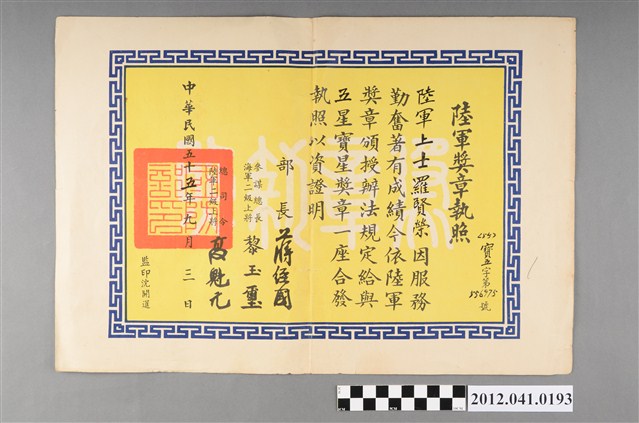 陸軍獎章執照
(59)
寶五字第
856975
號
陸軍上士羅賢榮因服務
勤奮著有成績今依陸軍
獎章頒授辦法規定給與
五星寶星獎章一座合發
執照以資證明
部長 蔣經國
參謀總長
海軍二級上將 黎玉璽
總司令
陸軍二級上將 高魁元
中華民國五十五年九月三日
監印沈開運
2012.041.0193